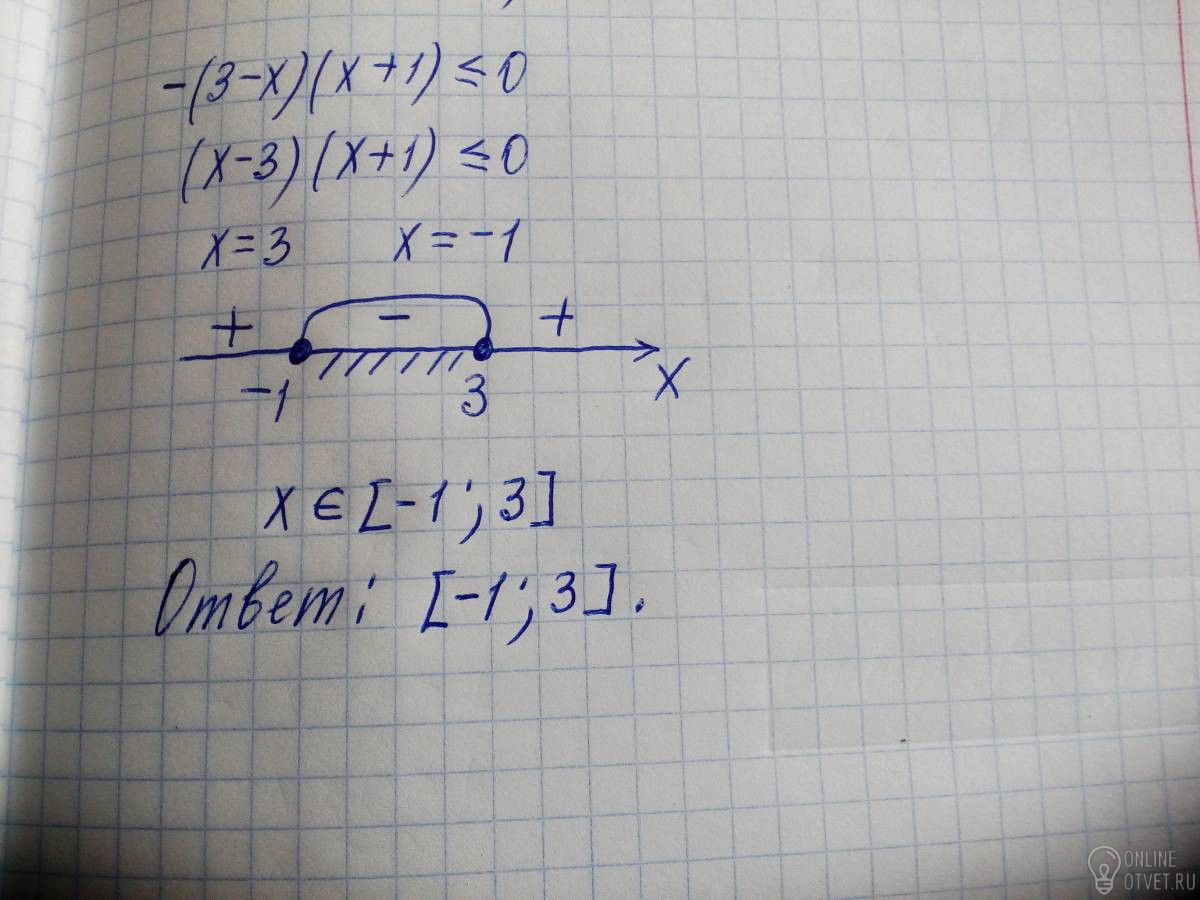 -(3-x)(x+1)≤0
(x-3)(x+1)≤0
x=3 x=-1
+ - +
-1 3 x
x∈[-1;3]
Ответ: [-1;3].
ONLINE
OTVET.RU